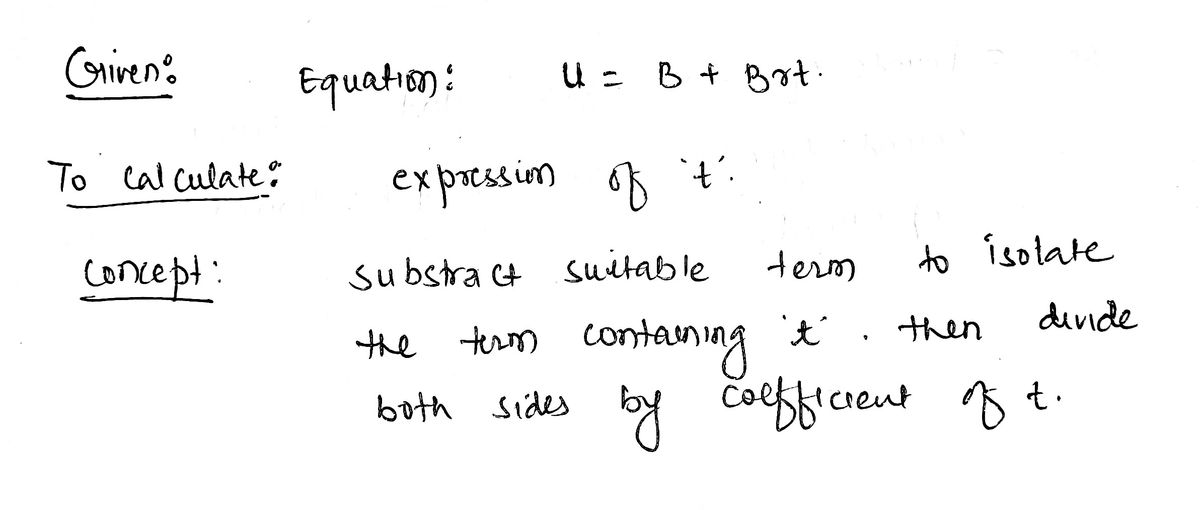 Given: Equation: u = B + Brt.
To calculate: expression of 't'.
concept: substract suitable term to isolate
the term containing 't'. then divide
both sides by coefficient of t.